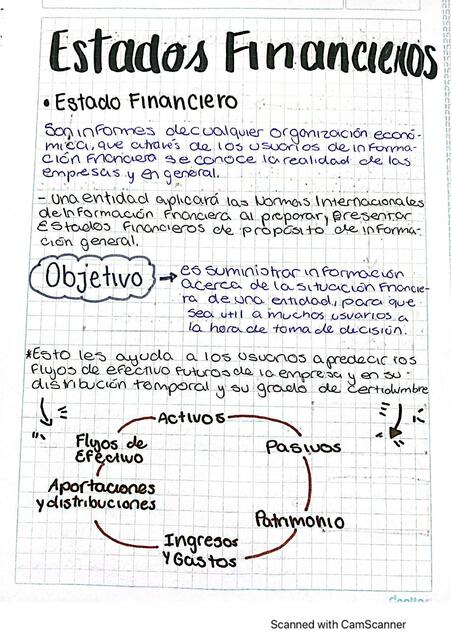 Estados Financieros
• Estado Financiero
Son informes de cualquier organización econó-
mica, que através de los usuarios de informa-
ción financiera se conoce la realidad de las
empresas y en general.
- una entidad aplicará las Normas Internacionales
de Información Financiera al preparar, presentar
Estados Financieros de propósito de informa-
ción general.
Objetivo → es suministrar información
acerca de la situación financie-
ra de una entidad, para que
sea util a muchos usuarios a
la hora de toma de decisión.
*Esto les ayuda a los usuarios a predecir los
flujos de efectivo futuros de la empresa y en su-
distribución temporal y su grado de certidumbre
Activos
Flujos de
Efectivo
Pasivos
Aportaciones
y distribuciones
Patrimonio
Ingresos
y Gastos
Scanned with CamScanner